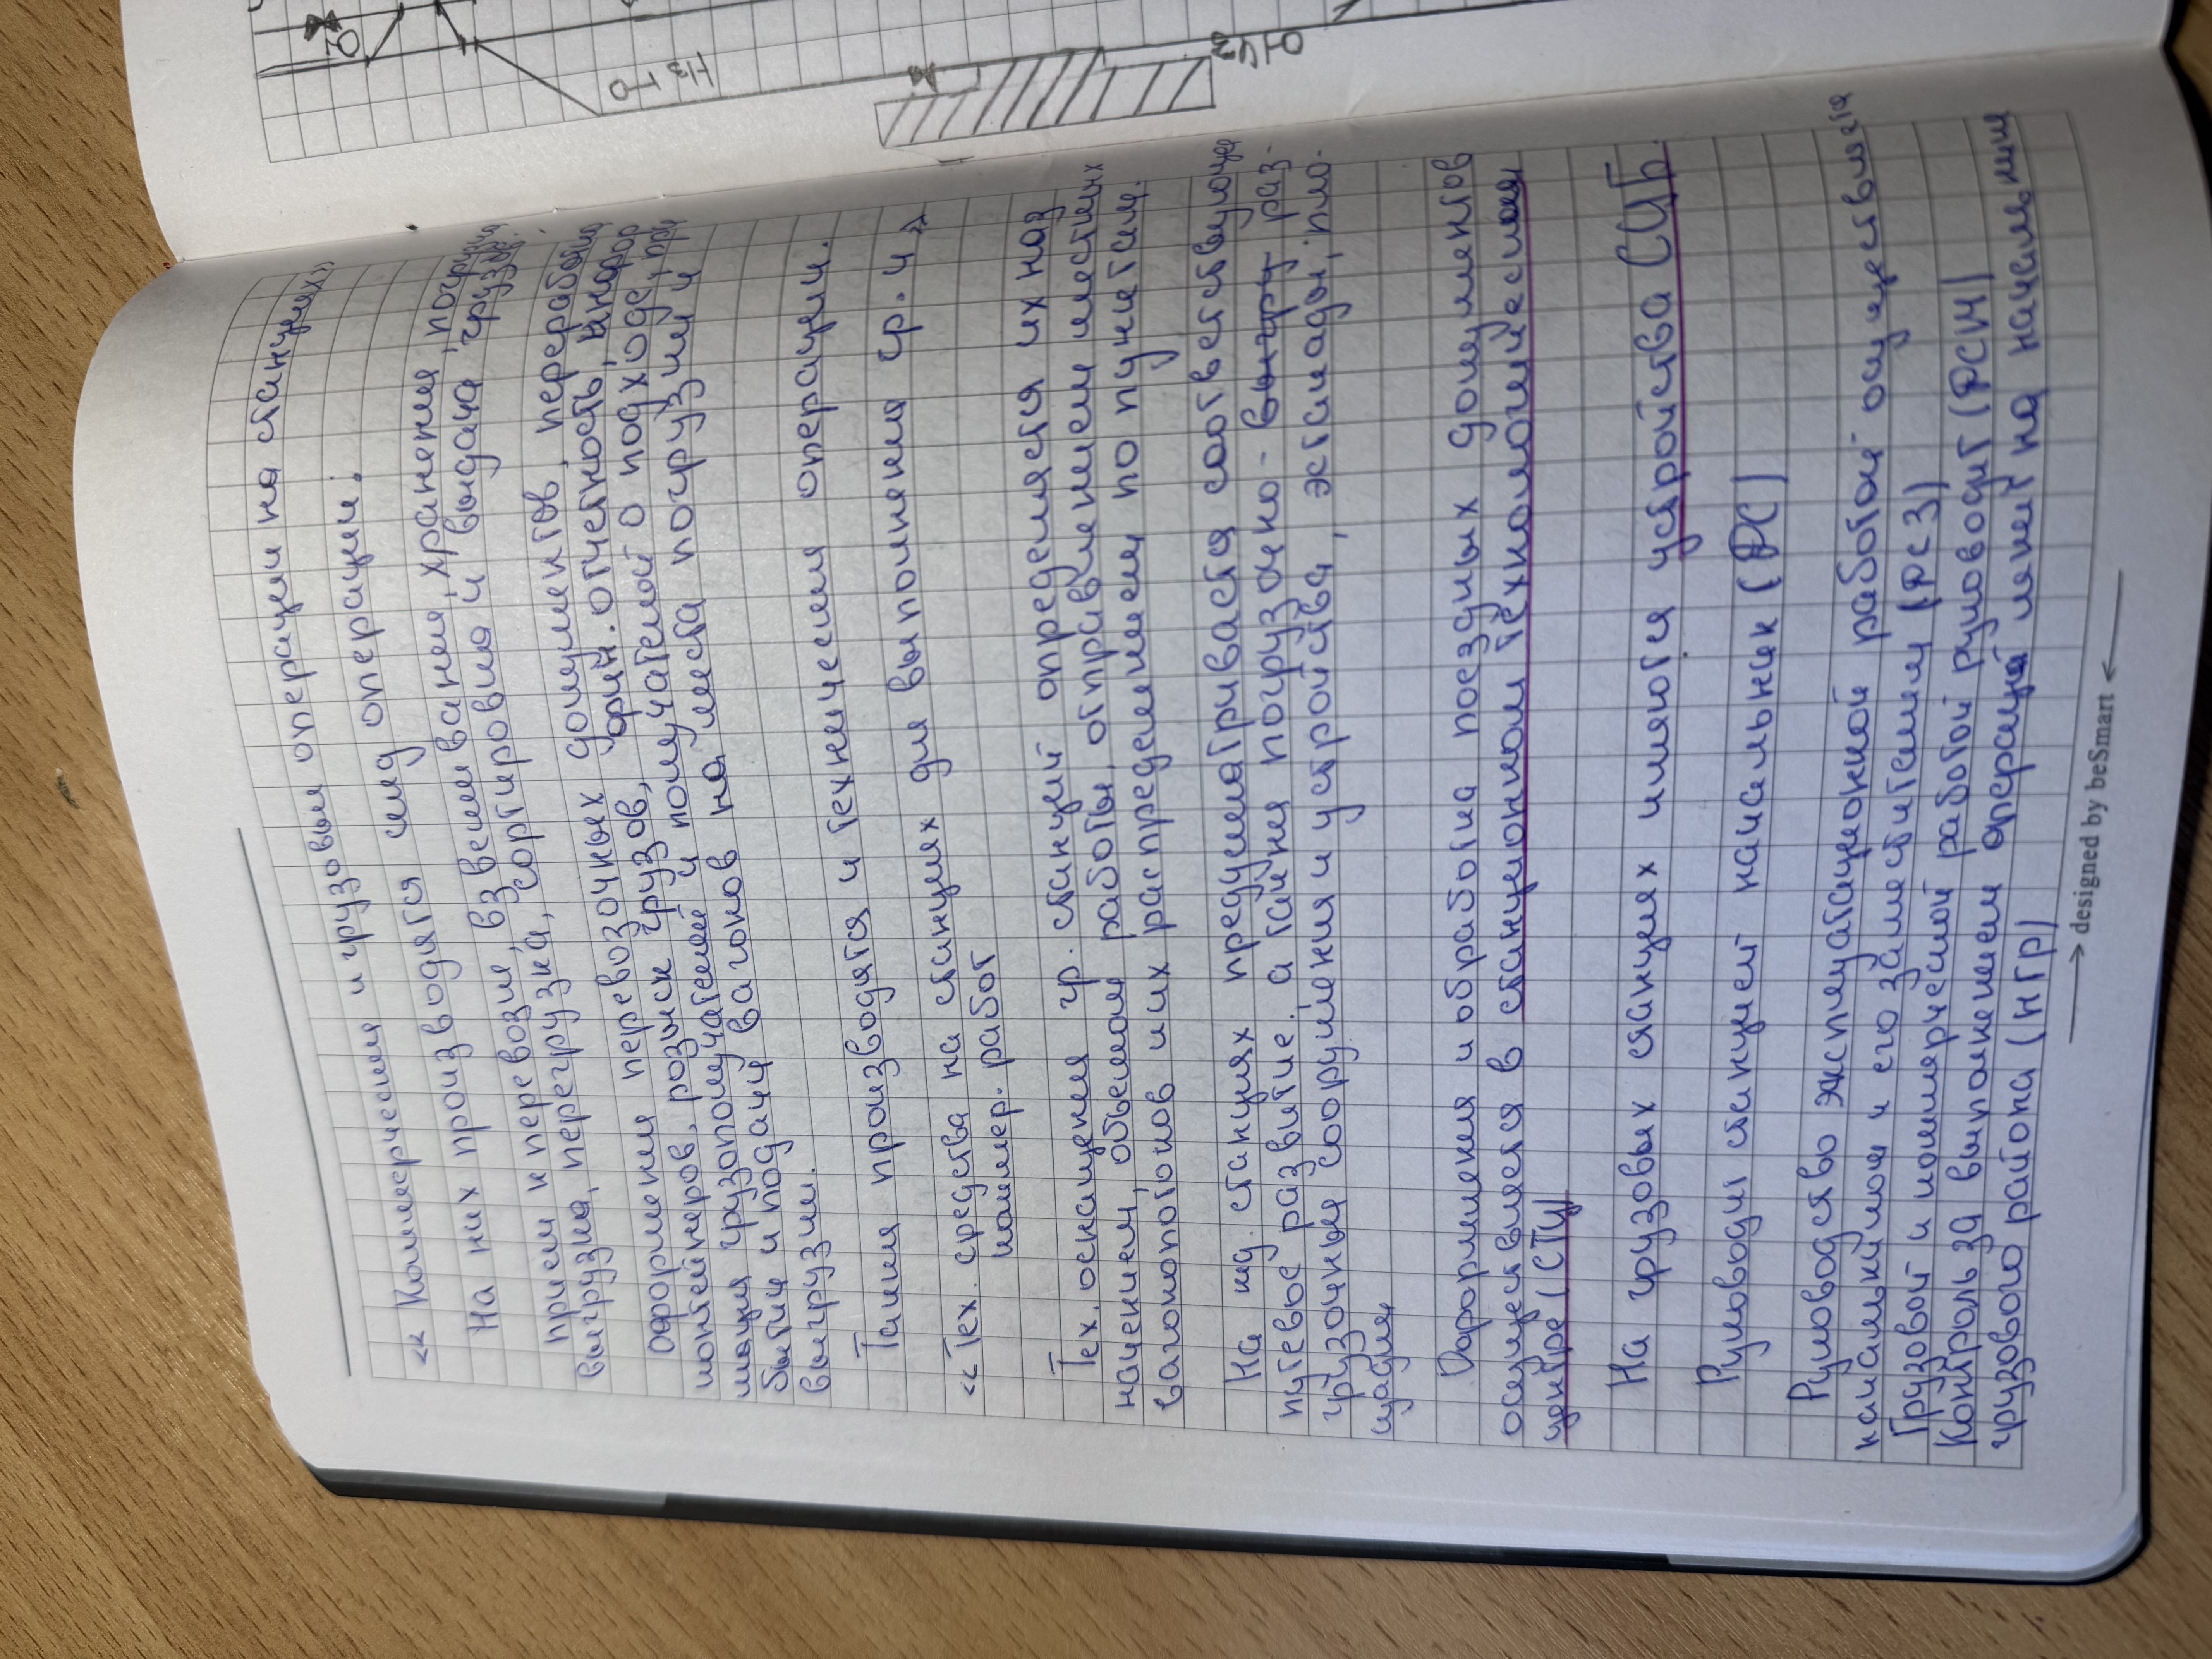 « Коммерческие и грузовые операции на станциях»
На них производятся след операции.
прием к перевозке, взвешивание, хранение, погрузка
выгрузка, перегрузка, сортировка и выдача грузов.
оформление перевозочных документов, переработка
контейнеров, розыск грузов, отчетность,
мация грузополучателей и получателей о подходе, при
бытии и подачи вагонов на места погрузки и
выгрузки.
Также производятся и технические операции.
« Тех. средства на станциях для выполнения гр. и »
коммер. работ
Тех. оснащения гр. станций определяется их наз
начением, объемом работы, отправлением местных
вагонопотоков и их распределением по пунктам.
На жд. станциях предусматривается соответствующее
путевое развитие. а также погрузочно- выгру раз-
грузочные сооружения и устройства, эстакады, пло-
щадки
Оформления и обработка поездных документов
осуществляется в станционном технологическом
центре (СТЦ)
На грузовых станциях имяются устройства СЦБ.
Руководит станцией начальник (ДС)
Руководство эксплуатационной работой осуществляется
начальником и его заместителем (ДСЗ)
Грузовой и коммерческой работой руководит (ДСМ)
Контроль за выполнением операций лежит на начальнике
грузового района (НГР)
→ designed by beSmart ←